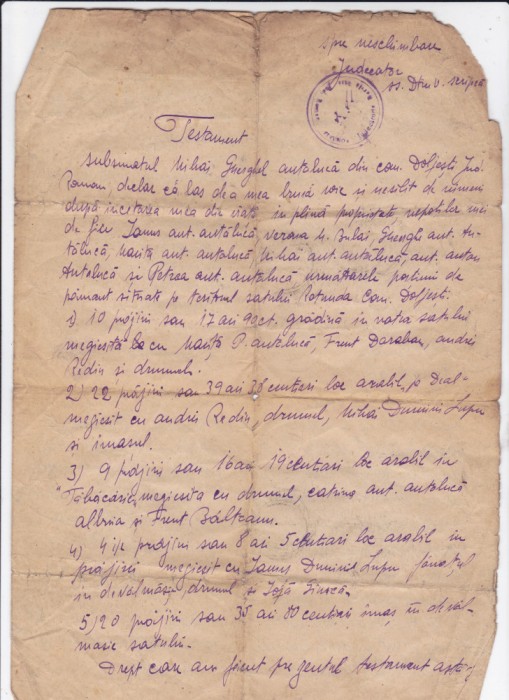 spre neschimbare
Judecator
ss. Dtru V.
Testament
Subsmatul Mihai Gheorghe antălucă din com. Doljești Jud.
Roman, declar că las de a mea bună voie și nesilit de nimeni
după incetarea mea din viață in plină propietate nepotilor mei
de fiu Ianus ant. antălucă, Verona M. Bulai, Gheorghe ant. An-
tălucă, Mariță ant. antalucă, Mihai ant. antălucă, ant. anton
Antalucă si Petrea ant. antalucă următoarele porțiuni de
pământ situate pe teritorul satului Rotunda Com. Doljesti.
1) 10 prăjini sau 17 ari 90 ct. grădină in vatra satului
megiesită cu Mariță P. antălucă, Frent Daraban, andrei
Redin si drumul.
2) 22 prăjini sau 39 ari 38 centiari loc arabil pe Deal
megiesit cu andrei Redin, drumul, Mihai Duminic Lupu
si imasul.
3) 9 prăjini sau 16 ari 19 centiari loc arabil in
Tăbăcărie megiesita cu drumul, catrina ant. antalucă
albia și Frent Bălteanu.
4) 4 1/2 prăjini sau 8 ari 5 centiari loc arabil in
prăjini megiesit cu Ianus Duminic Lupu fânațul
in devălmășie, drumul și Iojă
5) 20 prăjini sau 35 ari 80 centiari imaș in deval-
masie satului.
Drept care am făcut prezentul testament